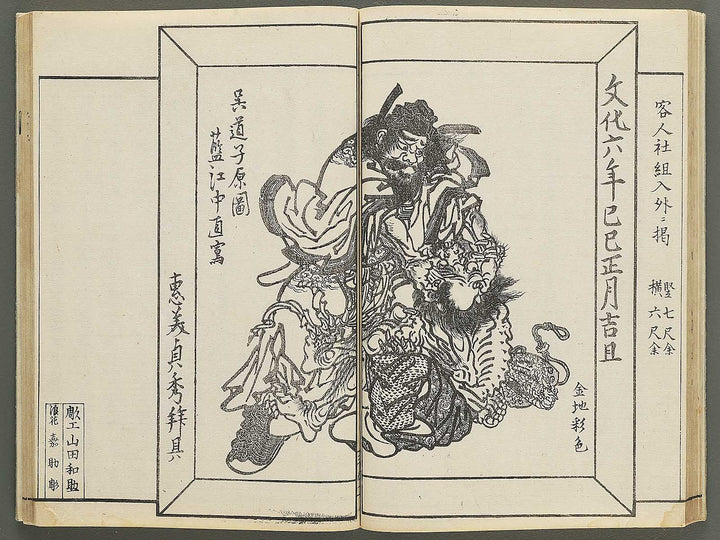 客人社組入外ニ掲
竪七尺余
横六尺余
文化六年己巳正月吉旦
金地彩色
呉道子原圖
藍江中直寫
恵美貞秀拜具
彫工山田和助
浪花嘉助彫